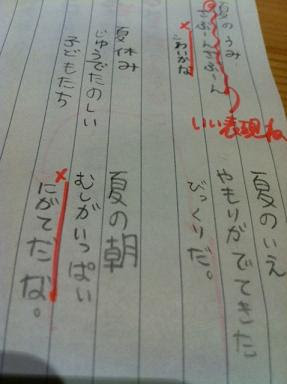 夏のうみ
ざぶーんざぶーん
こわいかな
いい表現ね
夏休み
じゅうでたのしい
子どもたち
夏のいえ
やもりがでてきた
びっくりだ。
夏の朝
むしがいっぱい
にがてだな。